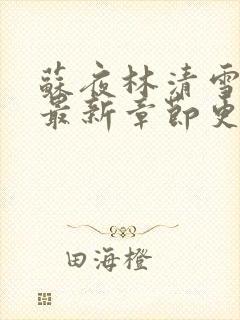 蘇夜林清雪
最新章節更
田海橙